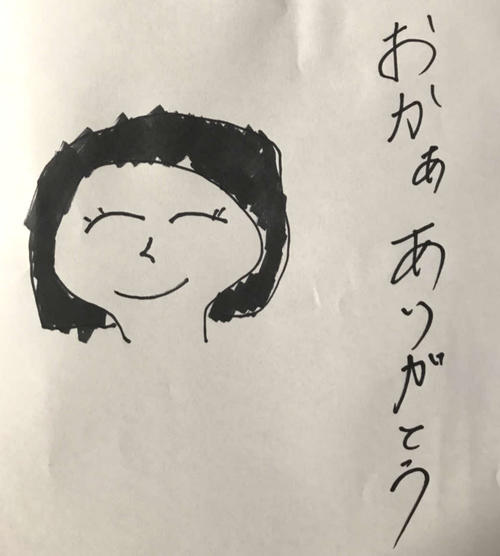 おかぁ ありがとう